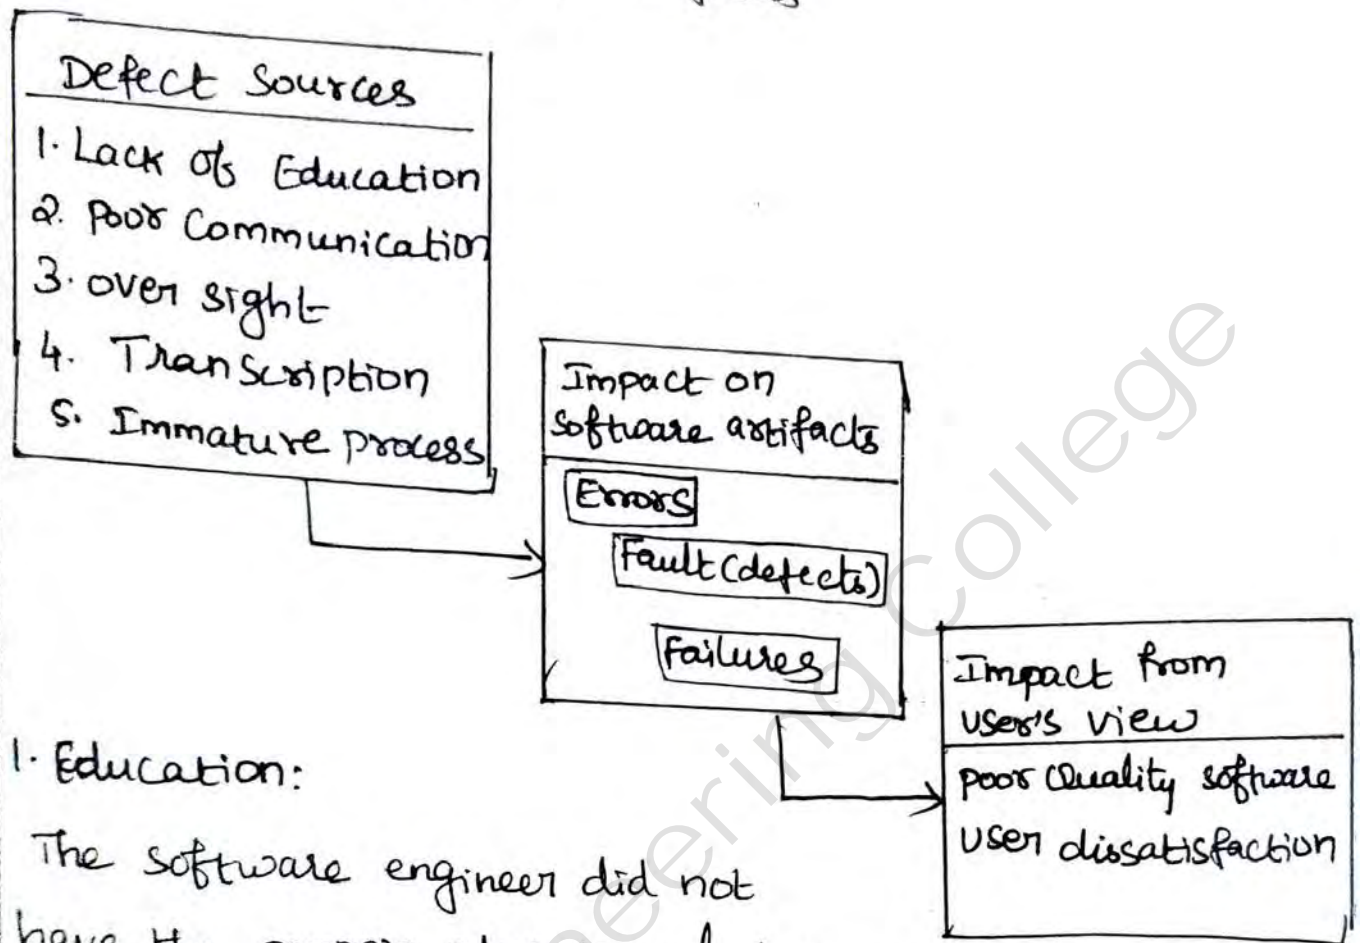 Defect Sources
1. Lack of Education
2. Poor Communication
3. over sight
4. Transcription
5. Immature process
Impact on
software artifacts
Errors
Fault (defects)
Failures
Impact from
user's view
poor Quality software
user dissatisfaction
1. Education:
The software engineer did not
have the
neering College